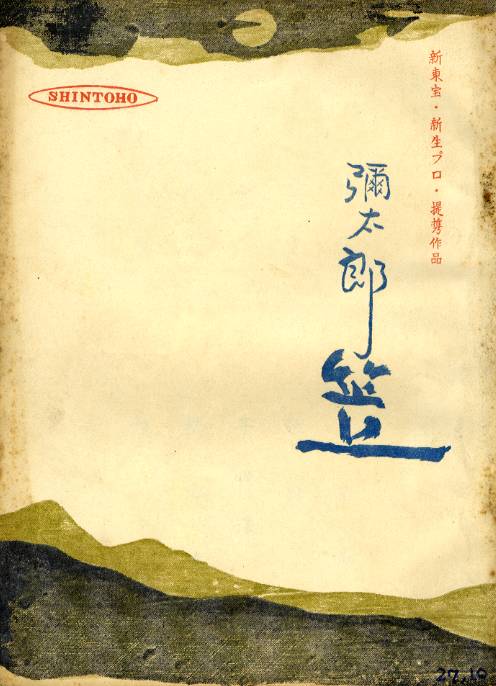 SHINTOHO
新東宝・新生プロ・提携作品
彌太郎笠
27.10